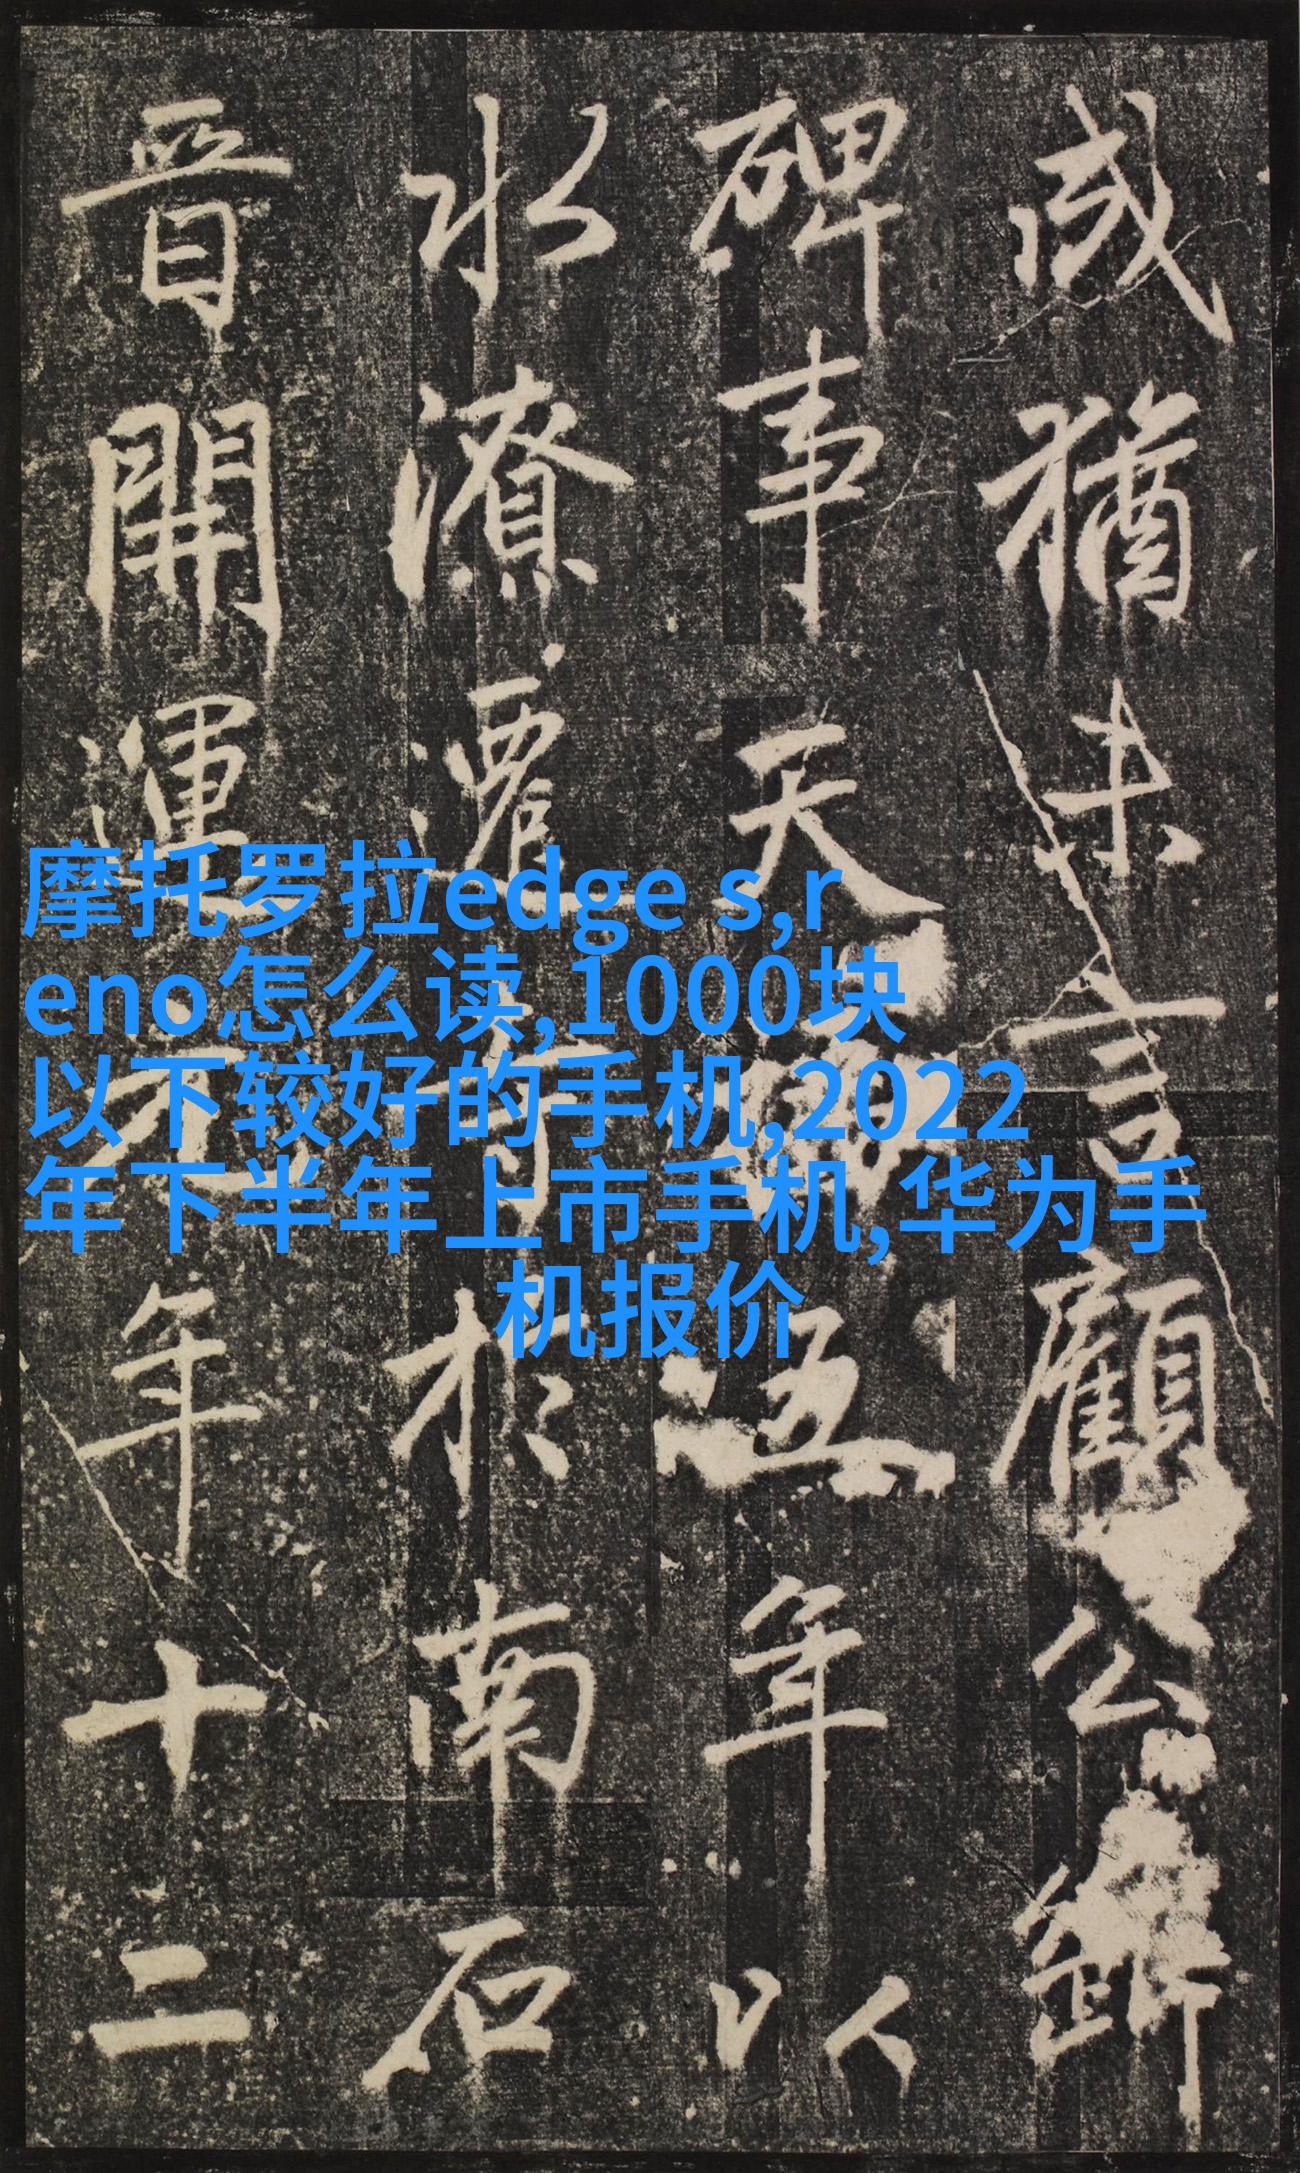 摩托罗拉edge s,r
eno怎么读,1000块
以下较好的手机,2022
年下半年上市手机,华为手
机报价
猶未言顧公
碑事天五年以
水潦遷於南石
晉開運年十二